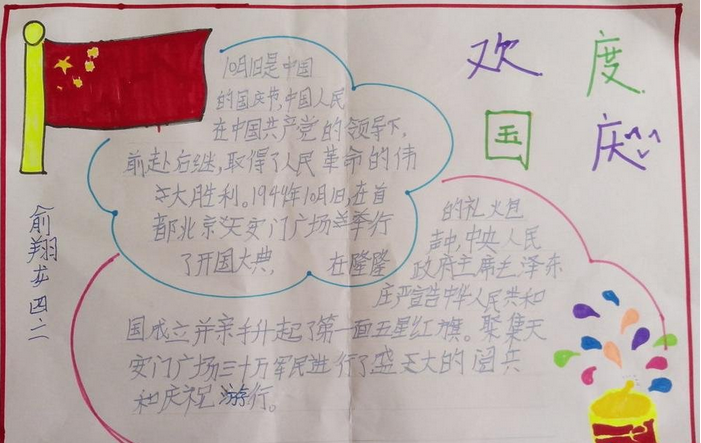 欢度
国庆
俞翔龙四二
10月1日是中国
的国庆节,中国人民
在中国共产党的领导下,
前赴后继,取得了人民革命的伟
大胜利。1944年10月1日,在首
都北京天安门广场举行
了开国大典, 在隆隆
的礼火包
声中,中央人民
政府主席毛泽东
庄严宣告中华人民共和
国成立并亲手升起了第一面五星红旗。聚集天
安门广场三十万军民进行了盛大的阅兵
和庆祝游行。